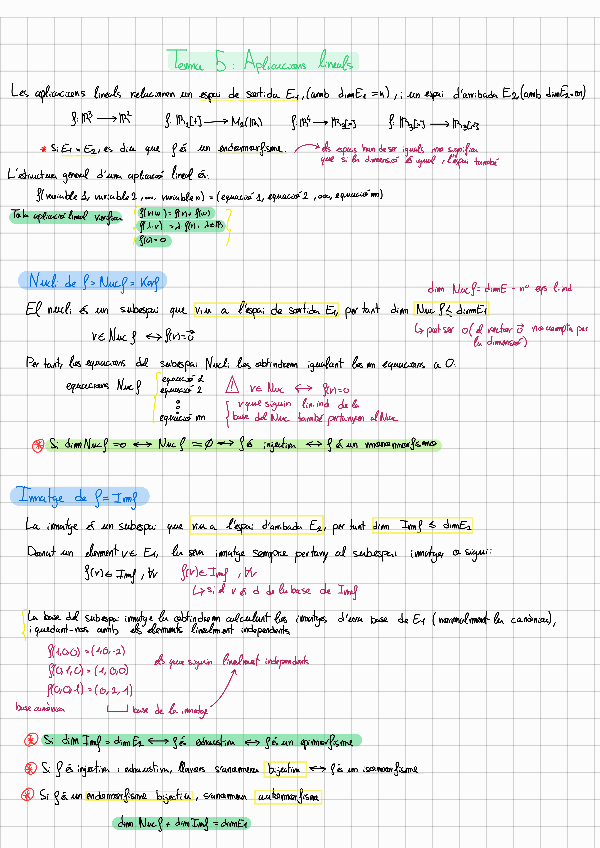 Tema 5: Aplicacions lineals
Les aplicacions lineals relacionen un espai de sortida E₁, (amb dimE₁ = n), i un espai d'arribada E₂ (amb dimE₂=m)
f: ℝ³ → ℝ² f: ℝ₂[x] → M₂(ℝ) f: ℝ⁴ → ℝ₃[x] f: ℝ₃[x] → ℝ₃[x]
* Si E₁ = E₂, es diu que f és un endomorfisme. → els espais han de ser iguals, no significa
que si la dimensió és igual, l'espai també
L'estructura general d'una aplicació lineal és:
f(variable 1, variable 2, ... variable n) = (equació 1, equació 2, ..., equació m)
Tota aplicació lineal verifica
f(v+w) = f(v) + f(w)
f(λ·v) = λ f(v), λ∈ℝ
f(0) = 0
Nucli de f = Nuc f = Ker f
dim Nuc f = dim E - nº eqs l. ind
El nucli és un subespai que viu a l'espai de sortida E₁, per tant dim Nuc f ≤ dimE₁
v ∈ Nuc f ↔ f(v) = 0⃗
↳ pot ser 0 (el vector 0⃗ no compta per
la dimensió)
Per tant, les equacions del subespai Nucli les obtindrem igualant les m equacions a 0.
equacions Nuc f
equació 1
equació 2
equació m
⚠ v ∈ Nuc ↔ f(v) = 0
v que siguin lin. ind de la
base del Nuc també pertanyen al Nuc
* Si dim Nuc f = 0 ↔ Nuc f = ∅ ↔ f és injectiva ↔ f és un monomorfisme
Imatge de f = Im f
La imatge és un subespai que viu a l'espai d'arribada E₂, per tant dim Im f ≤ dimE₂
Donat un element v ∈ E₁, la seva imatge sempre pertany al subespai imatge, o sigui:
f(v) ∈ Im f, ∀v f(v) ∈ Im f, ∀v
↳ si el v és d de la base de Im f
La base del subespai imatge la obtindrem calculant les imatges d'una base de E₁ (normalment la canònica),
i quedant-nos amb els elements linealment independents
f(1,0,0) = (1,0,-2)
f(0,1,0) = (1,0,0)
f(0,0,1) = (0,2,1)
els que siguin linealment independents
base canònica
base de la imatge
* Si dim Im f = dim E₂ ↔ f és exhaustiva ↔ f és un epimorfisme
* Si f és injectiva i exhaustiva, llavors s'anomena bijectiva ↔ f és un isomorfisme
* Si f és un endomorfisme bijectiu, s'anomena automorfisme
dim Nuc f + dim Im f = dim E₁